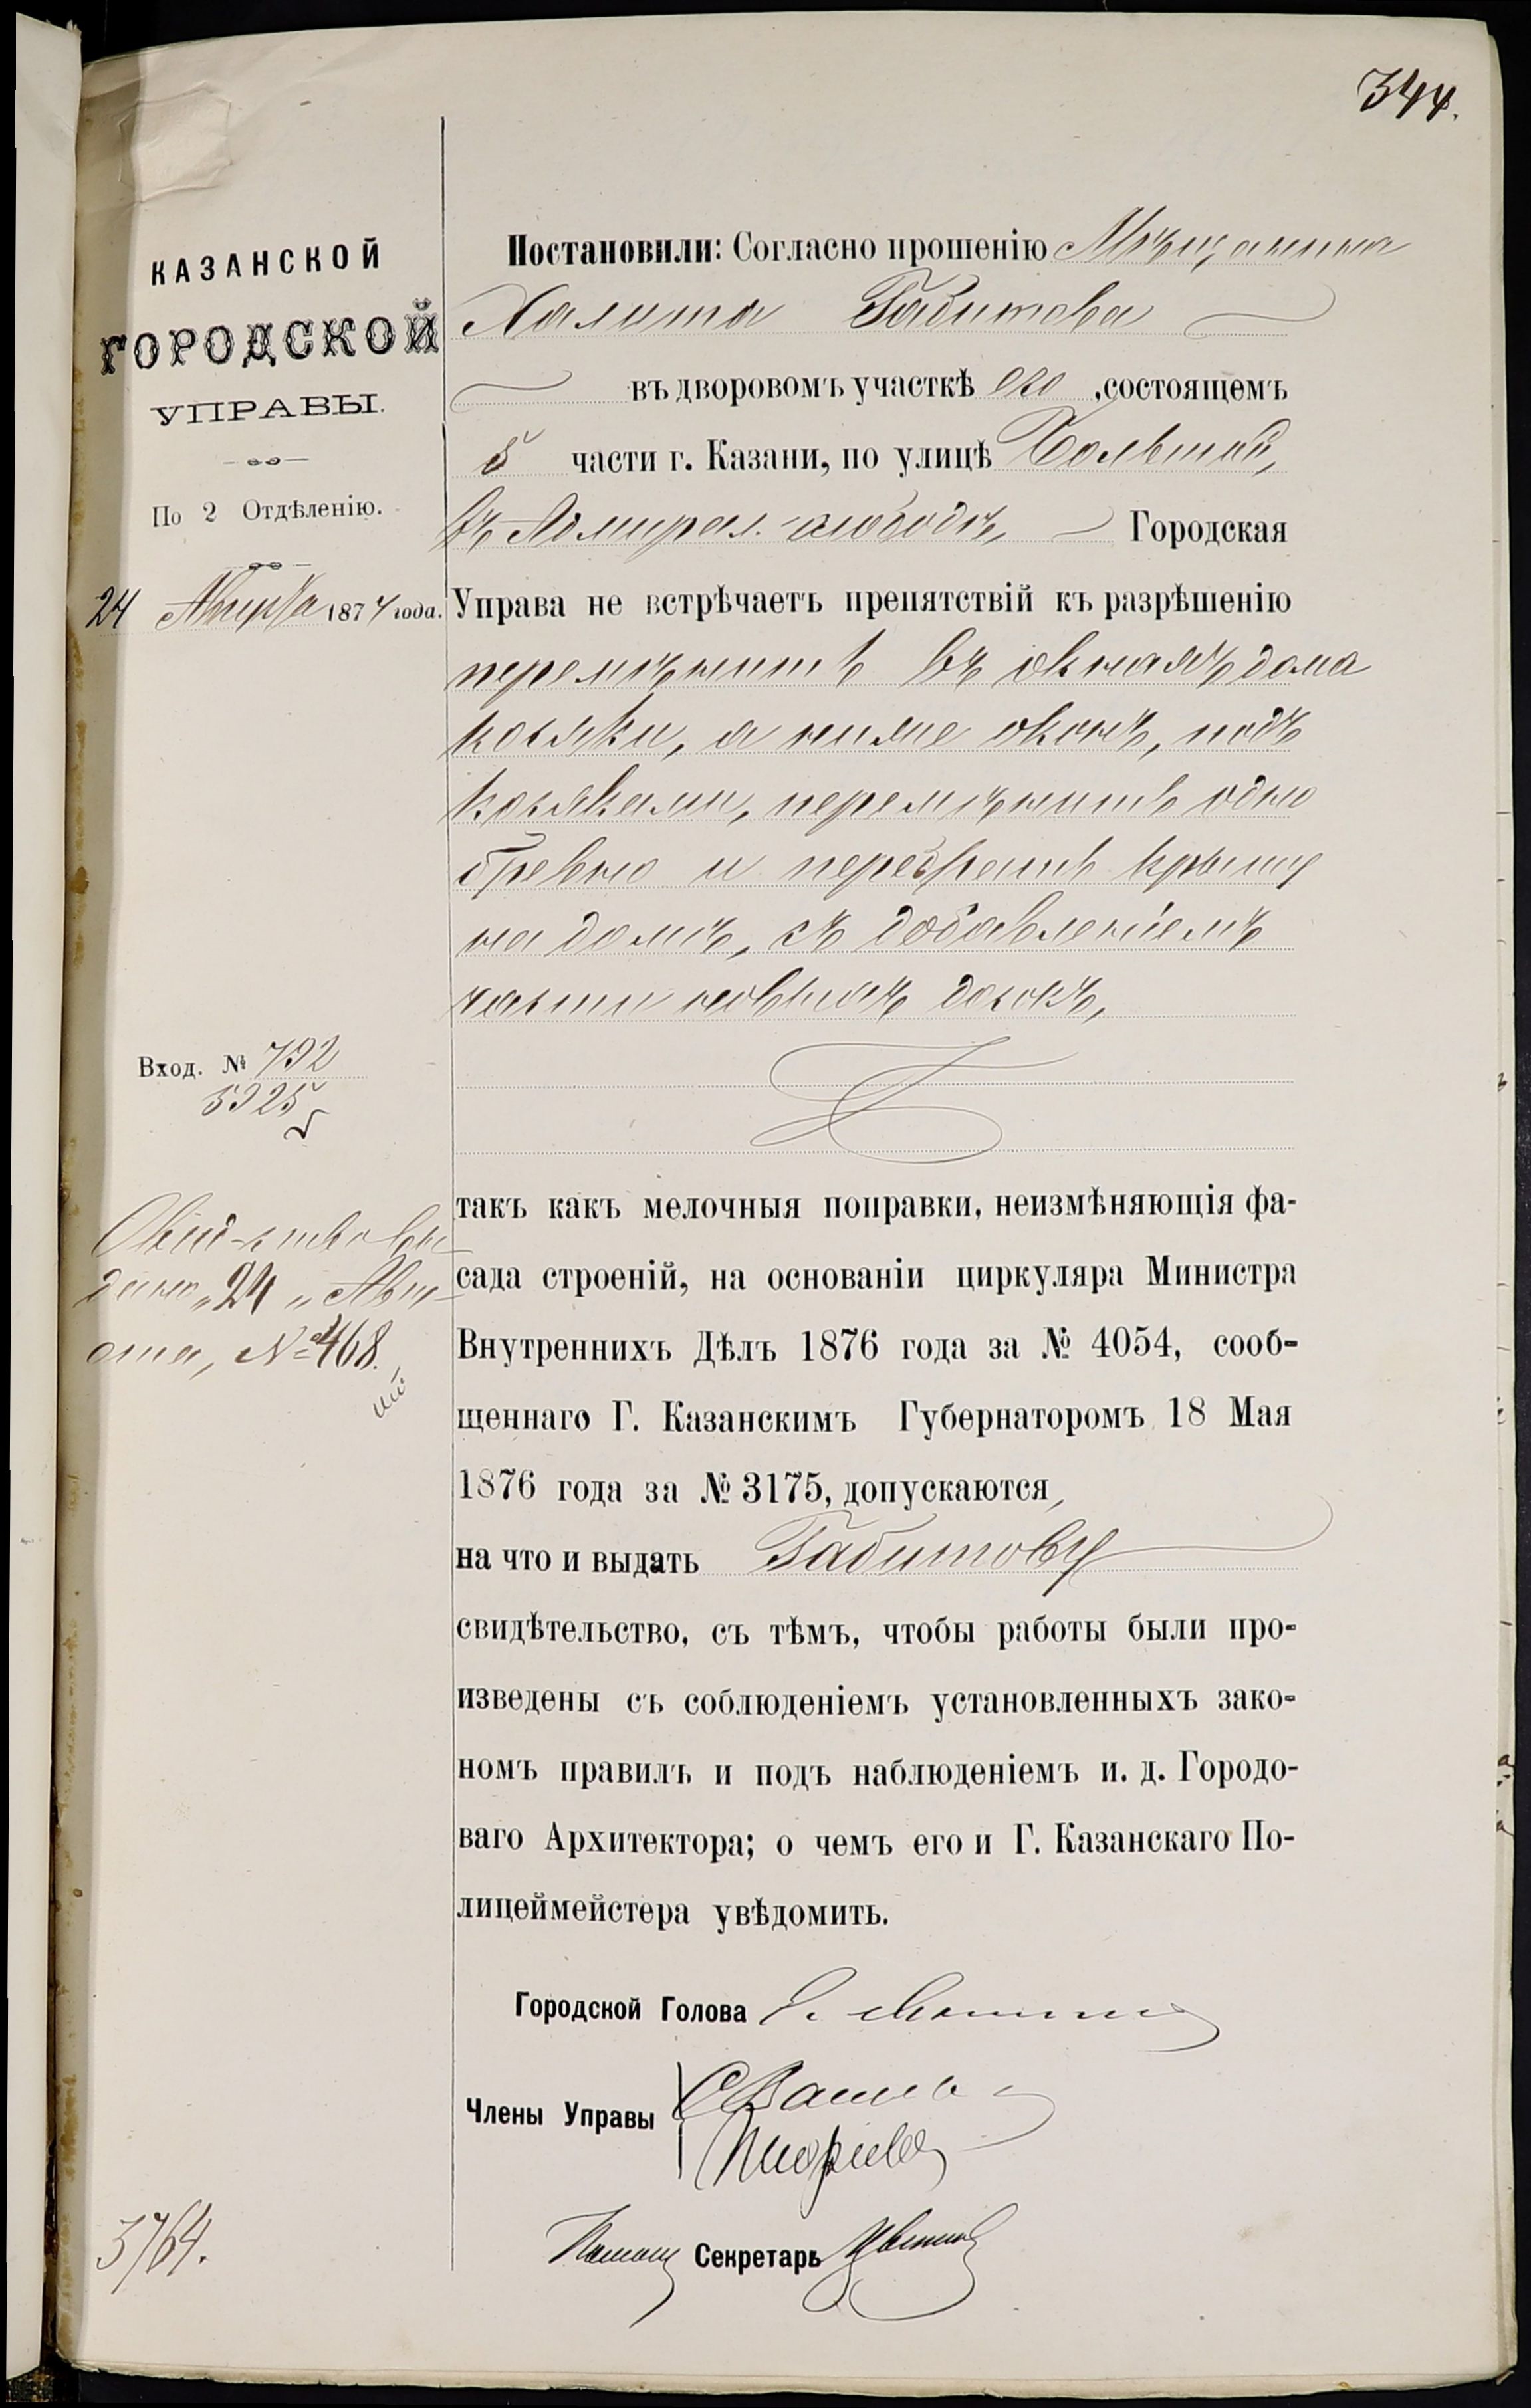 344.
КАЗАНСКОЙ
ГОРОДСКОЙ
УПРАВЫ.
По 2 Отдѣленію.
24 Августа 1877 года.
Вход. № 792
5925
Свид-ство вы-
дано „24„ Авгу-
ста, № 468.
3764.
Постановили: Согласно прошенію Мѣщанина
Халита Габитова
въ дворовомъ участкѣ его, состоящемъ
5 части г. Казани, по улицѣ Большой,
въ Адмирал. слободѣ, Городская
Управа не встрѣчаетъ препятствій къ разрѣшенію
перемѣнить въ окнахъ дома
косяки, а ниже оконъ, подъ
косяками, перемѣнить одно
бревно и перебрать крышу
на домѣ, съ добавленіемъ
части новыхъ досокъ,
такъ какъ мелочныя поправки, неизмѣняющія фа-
сада строеній, на основаніи циркуляра Министра
Внутреннихъ Дѣлъ 1876 года за № 4054, сооб-
щеннаго Г. Казанскимъ Губернаторомъ 18 Мая
1876 года за № 3175, допускаются,
на что и выдать Габитову
свидѣтельство, съ тѣмъ, чтобы работы были про-
изведены съ соблюденіемъ установленныхъ зако-
номъ правилъ и подъ наблюденіемъ и. д. Городо-
ваго Архитектора; о чемъ его и Г. Казанскаго По-
лицеймейстера увѣдомить.
Городской Голова
Члены Управы
Секретарь